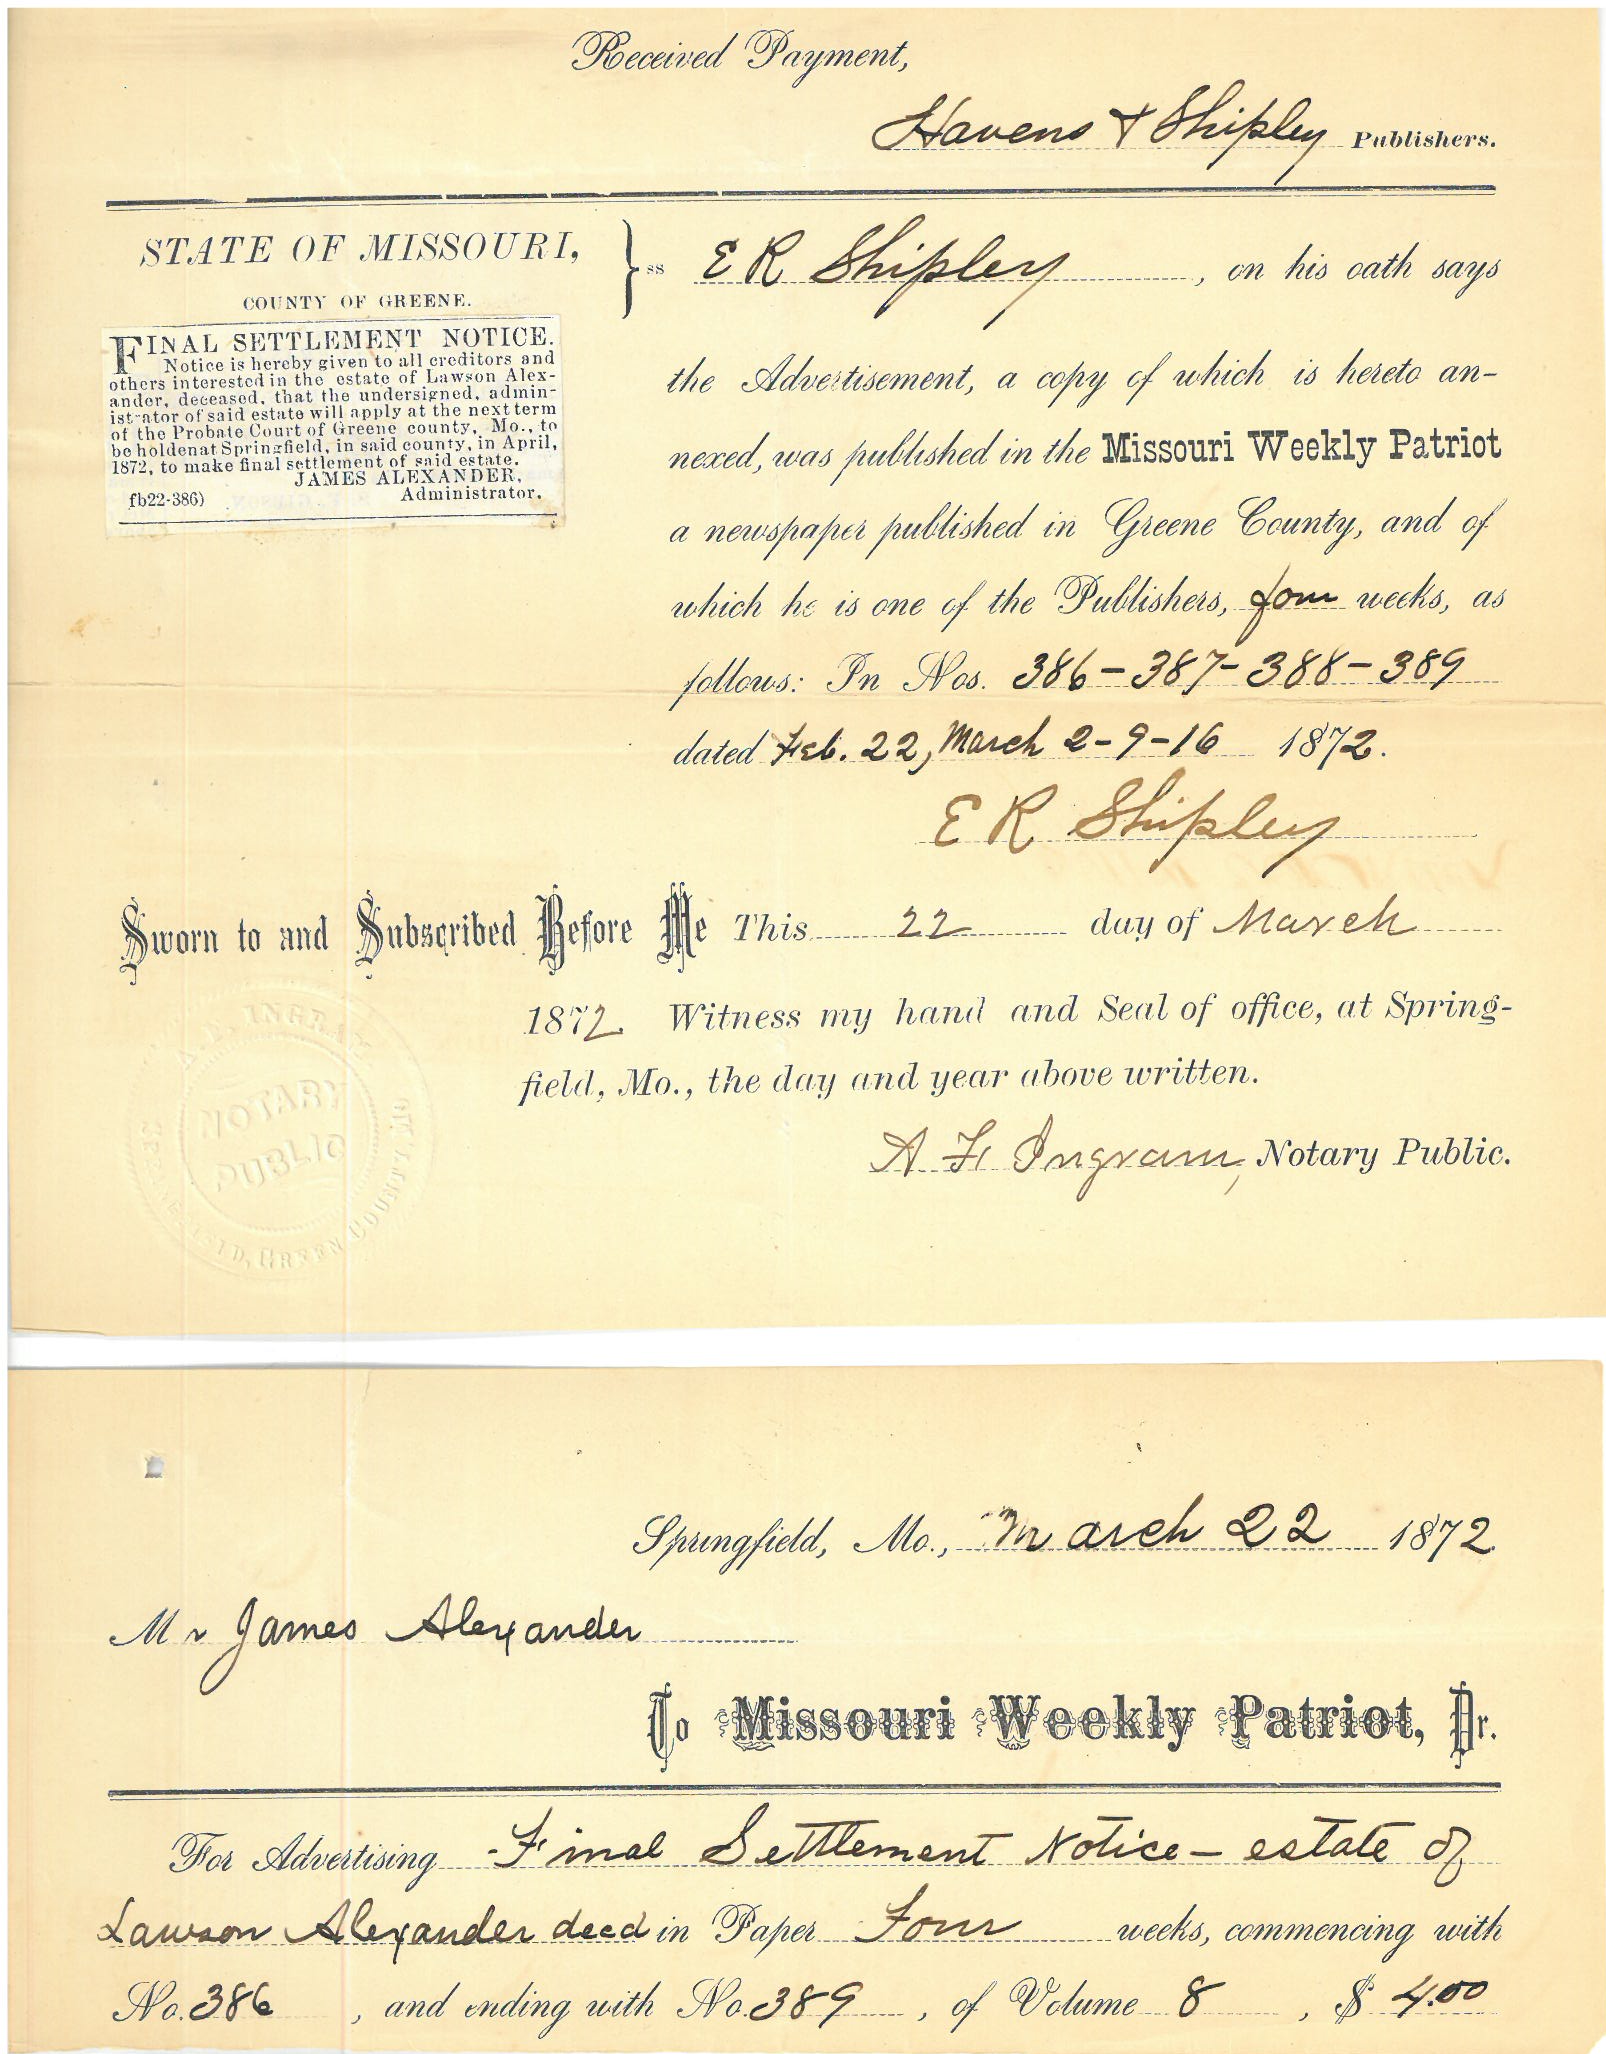 Received Payment,
Havens & Shipley Publishers.
STATE OF MISSOURI,
COUNTY OF GREENE.
} ss
FINAL SETTLEMENT NOTICE.
Notice is hereby given to all creditors and
others interested in the estate of Lawson Alex-
ander, deceased, that the undersigned, admin-
istrator of said estate will apply at the next term
of the Probate Court of Greene county, Mo., to
be holdenat Springfield, in said county, in April,
1872, to make final settlement of said estate.
JAMES ALEXANDER,
fb22-386) Administrator.
E R Shipley, on his oath says
the Advertisement, a copy of which is hereto an-
nexed, was published in the Missouri Weekly Patriot
a newspaper published in Greene County, and of
which he is one of the Publishers, four weeks, as
follows: In Nos. 386-387-388-389
dated Feb. 22, March 2-9-16 1872.
E R Shipley
Sworn to and Subscribed Before Me This 22 day of March
1872 Witness my hand and Seal of office, at Spring-
field, Mo., the day and year above written.
A F Ingram, Notary Public.
INGRAM
NOTARY
PUBLIC
GREEN COUNTY
Springfield, Mo., March 22 1872
Mr James Alexander
To Missouri Weekly Patriot, Dr.
For Advertising Final Settlement Notice - estate of
Lawson Alexander decd in Paper Four weeks, commencing with
No. 386, and ending with No. 389, of Volume 8, $ 4.00